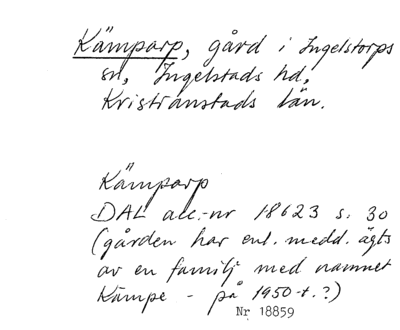 Kämparp, gård i Ingelstorps
sn, Ingelstads hd,
Kristianstads län.
Kämparp
DAL acc.-nr 18623 s. 30
(gården har enl. medd. ägts
av en familj med namnet
Kämpe - på 1950-t.?)
Nr 18859